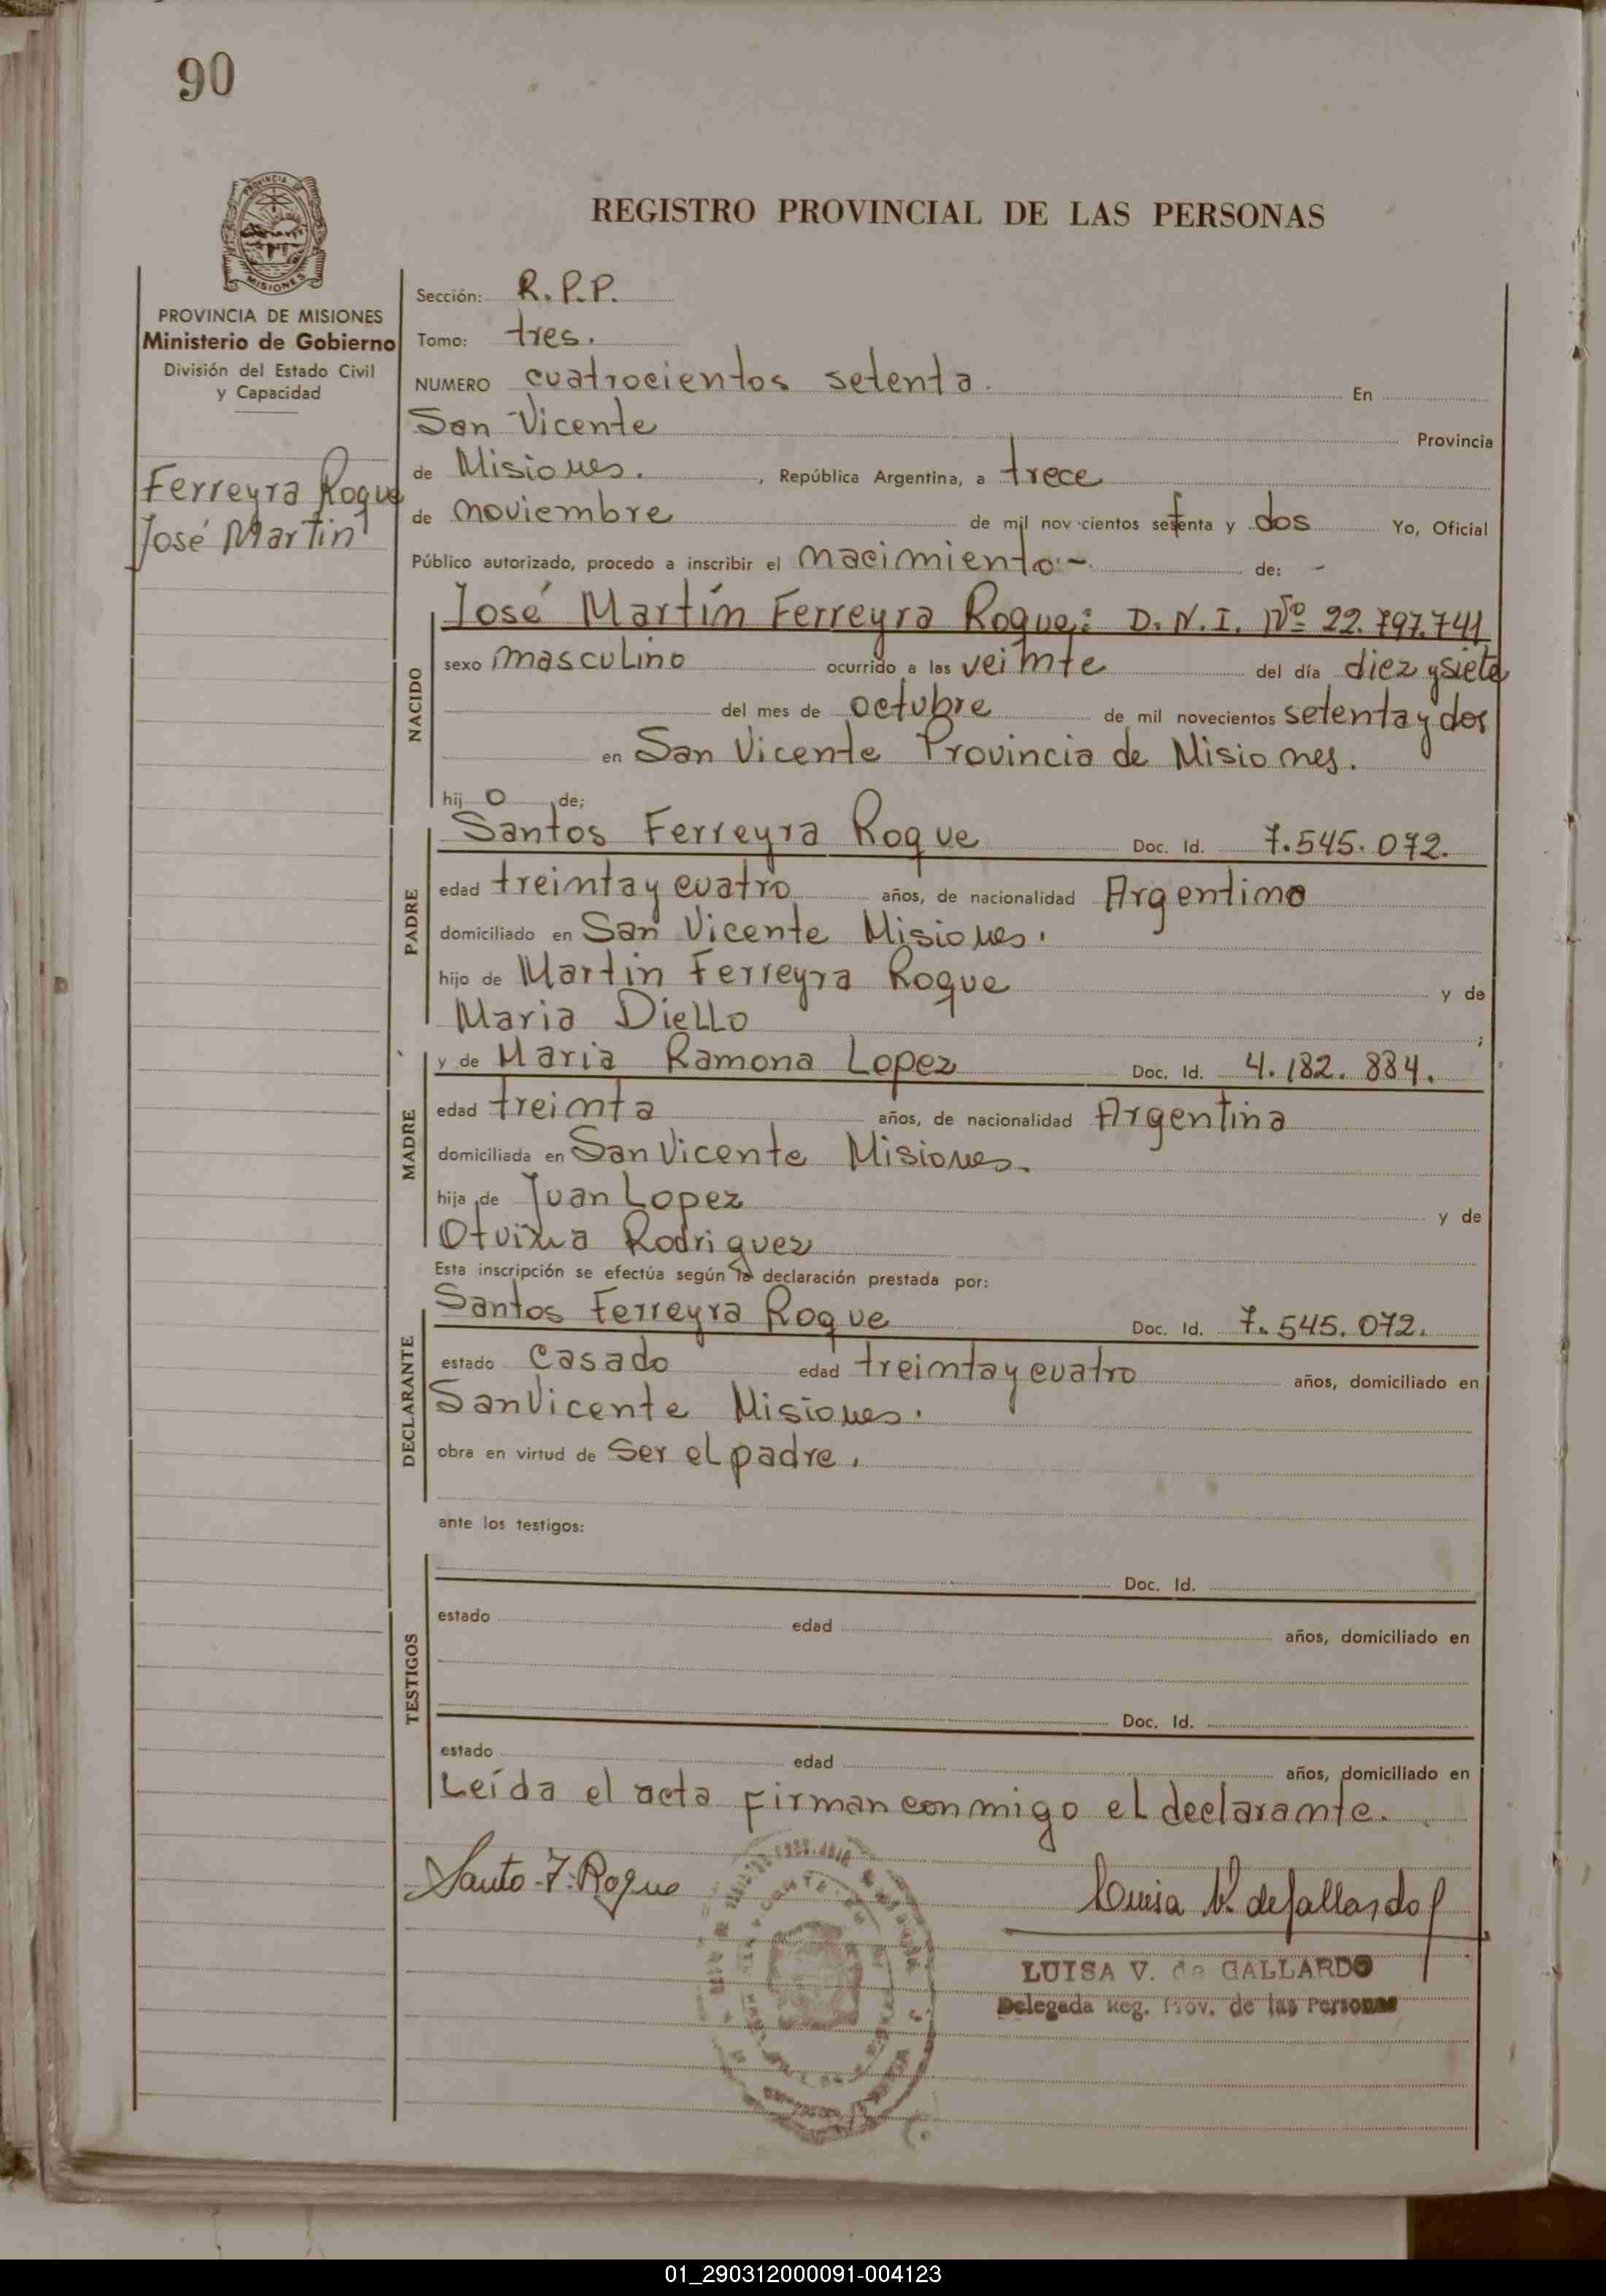 90
REGISTRO PROVINCIAL DE LAS PERSONAS
PROVINCIA DE MISIONES
MISIONES
PROVINCIA DE MISIONES
Ministerio de Gobierno
División del Estado Civil
y Capacidad
Ferreyra Roque
José Martin
Sección: R.P.P.
Tomo: tres.
NUMERO cuatrocientos setenta. En
San Vicente Provincia
de Misiones. , República Argentina, a trece
de noviembre de mil novecientos setenta y dos Yo, Oficial
Público autorizado, procedo a inscribir el nacimiento.- de: -
NACIDO
José Martín Ferreyra Roque: D.N.I. Nº 22.797.741
sexo masculino ocurrido a las veinte del día diez y siete
del mes de octubre de mil novecientos setenta y dos
en San Vicente Provincia de Misiones.
hij o de;
PADRE
Santos Ferreyra Roque Doc. Id. 7.545.072.
edad treinta y cuatro años, de nacionalidad Argentino
domiciliado en San Vicente Misiones.
hijo de Martin Ferreyra Roque y de
Maria Diello ;
MADRE
y de Maria Ramona Lopez Doc. Id. 4.182.884.
edad treinta años, de nacionalidad Argentina
domiciliada en San Vicente Misiones.
hija de Juan Lopez y de
Rodriguez
Esta inscripción se efectúa según la declaración prestada por:
DECLARANTE
Santos Ferreyra Roque Doc. Id. 7.545.072.
estado casado edad treinta y cuatro años, domiciliado en
San Vicente Misiones.
obra en virtud de ser el padre.
ante los testigos:
TESTIGOS
Doc. Id.
estado edad años, domiciliado en
Doc. Id.
estado edad años, domiciliado en
Leída el acta firman conmigo el declarante.
Santo F. Roque
Luisa V. de Gallardo
LUISA V. de GALLARDO
Delegada Reg. Prov. de las Personas
01_290312000091-004123